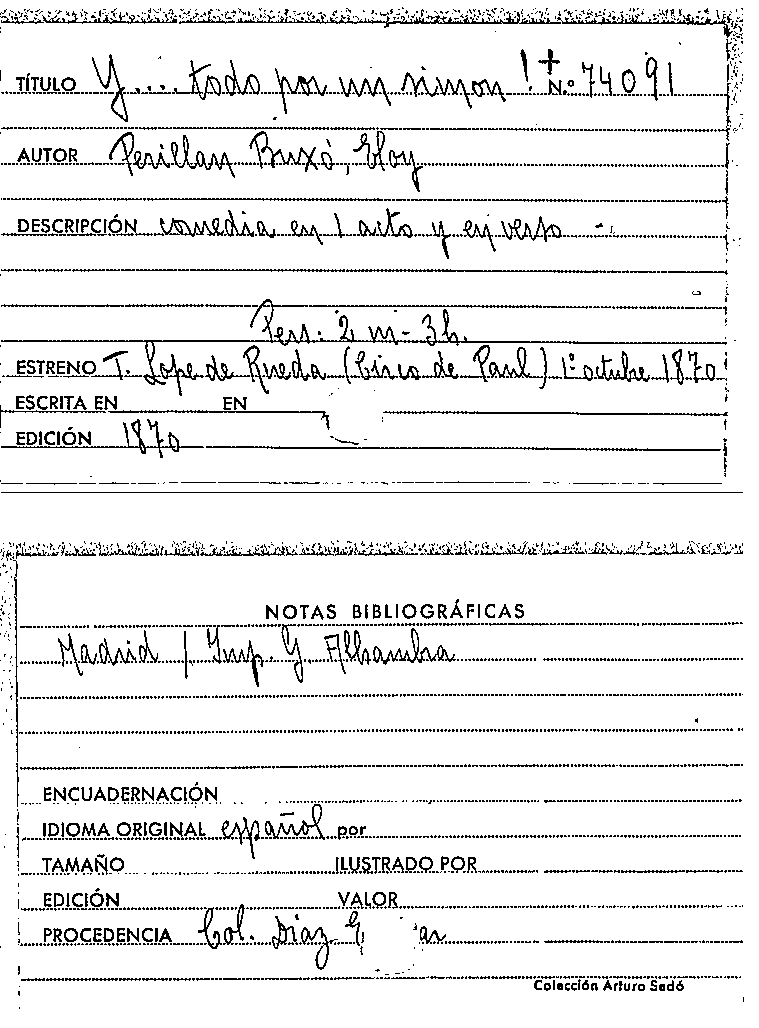 TÍTULO Y.... todo por un simon ! + N.º 74091
AUTOR Perillan Buxó, Eloy
DESCRIPCIÓN comedia en 1 acto y en verso -
Pers: 2 m - 3 h.
ESTRENO T. Lope de Rueda (Circo de Paul) 1º octubre 1870
ESCRITA EN EN
EDICIÓN 1870
NOTAS BIBLIOGRÁFICAS
Madrid / Imp. G. Alhambra
ENCUADERNACIÓN
IDIOMA ORIGINAL español por
TAMAÑO ILUSTRADO POR
EDICIÓN VALOR
PROCEDENCIA Col. Díaz
Colección Arturo Sedó